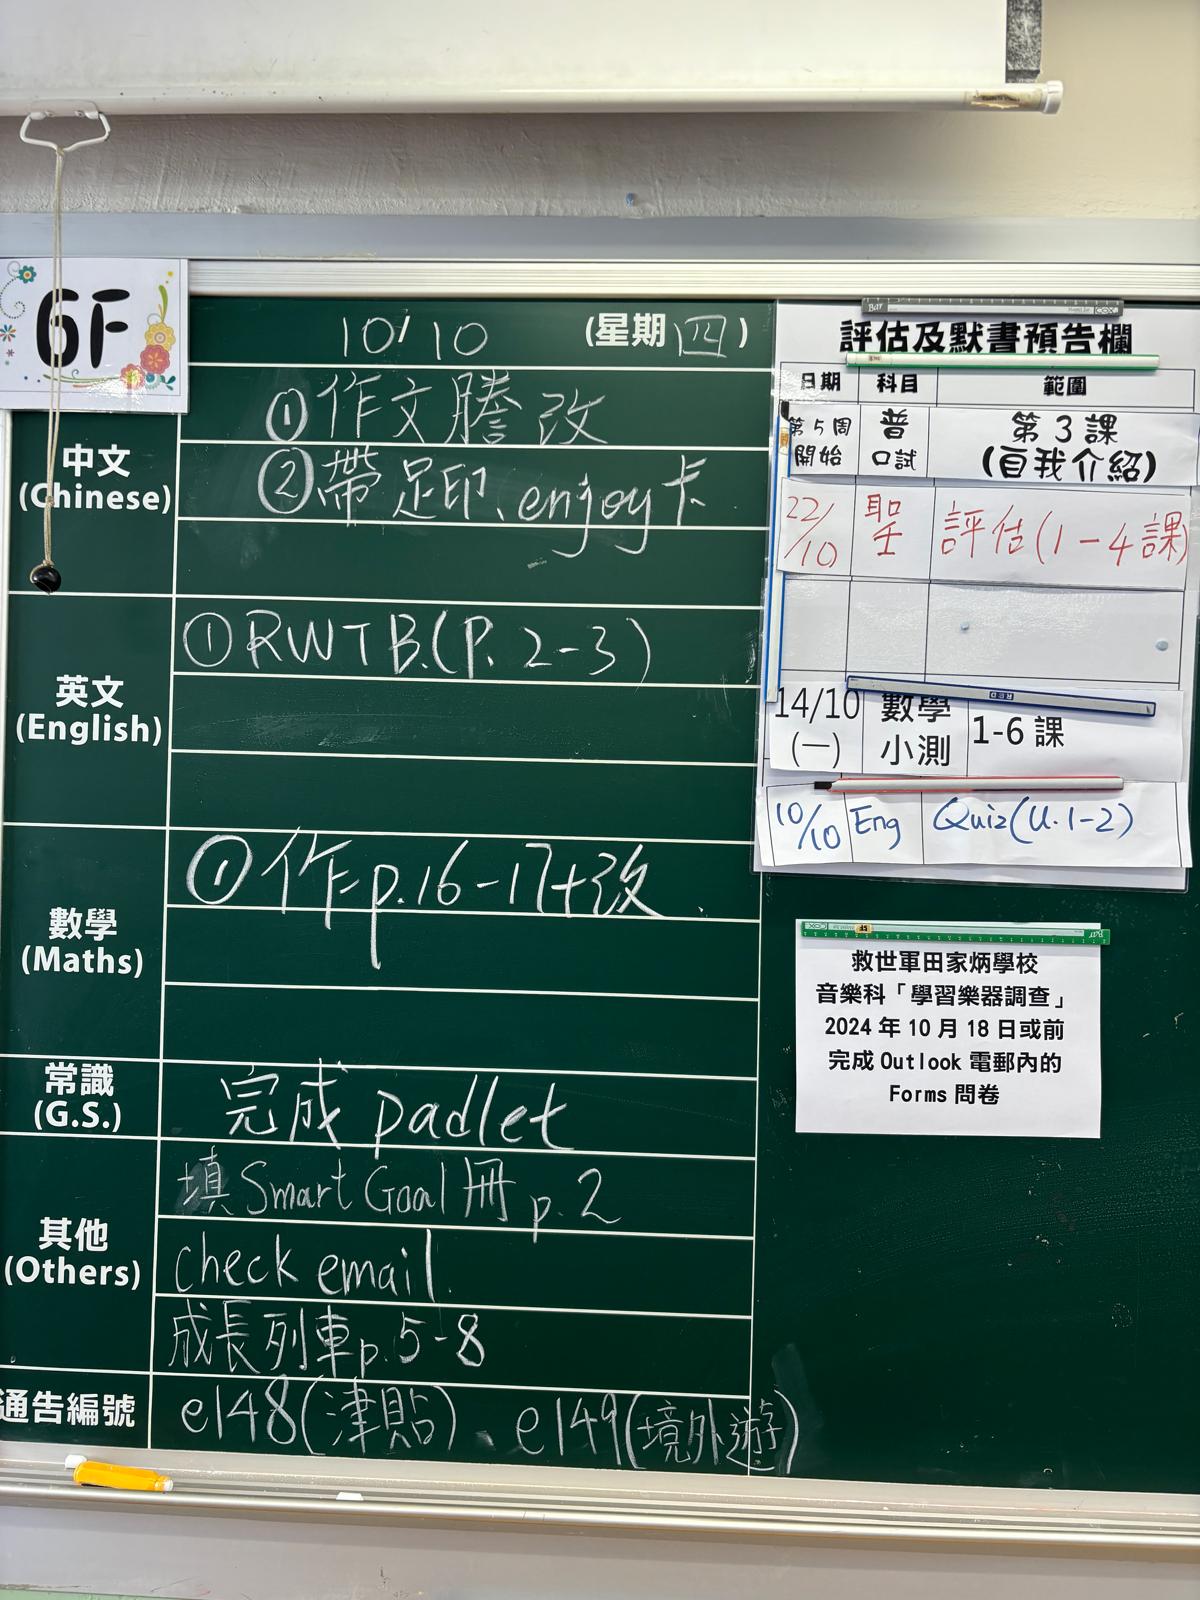 6F
10/10 (星期四)
中文
(Chinese)
①作文謄改
②帶足印、enjoy卡
英文
(English)
①RWTB.(P. 2-3)
數學
(Maths)
①作p.16-17+改
常識
(G.S.)
完成 padlet
其他
(Others)
填Smart Goal冊 p.2
check email
成長列車p.5-8
通告編號
e148(津貼)、e149(境外遊)
評估及默書預告欄
日期 科目 範圍
第5周開始 普口試 第3課(自我介紹)
22/10 聖 評估(1-4課)
14/10(一) 數學小測 1-6 課
10/10 Eng Quiz(U.1-2)
救世軍田家炳學校
音樂科「學習樂器調查」
2024 年 10 月 18 日或前
完成 Outlook 電郵內的
Forms 問卷